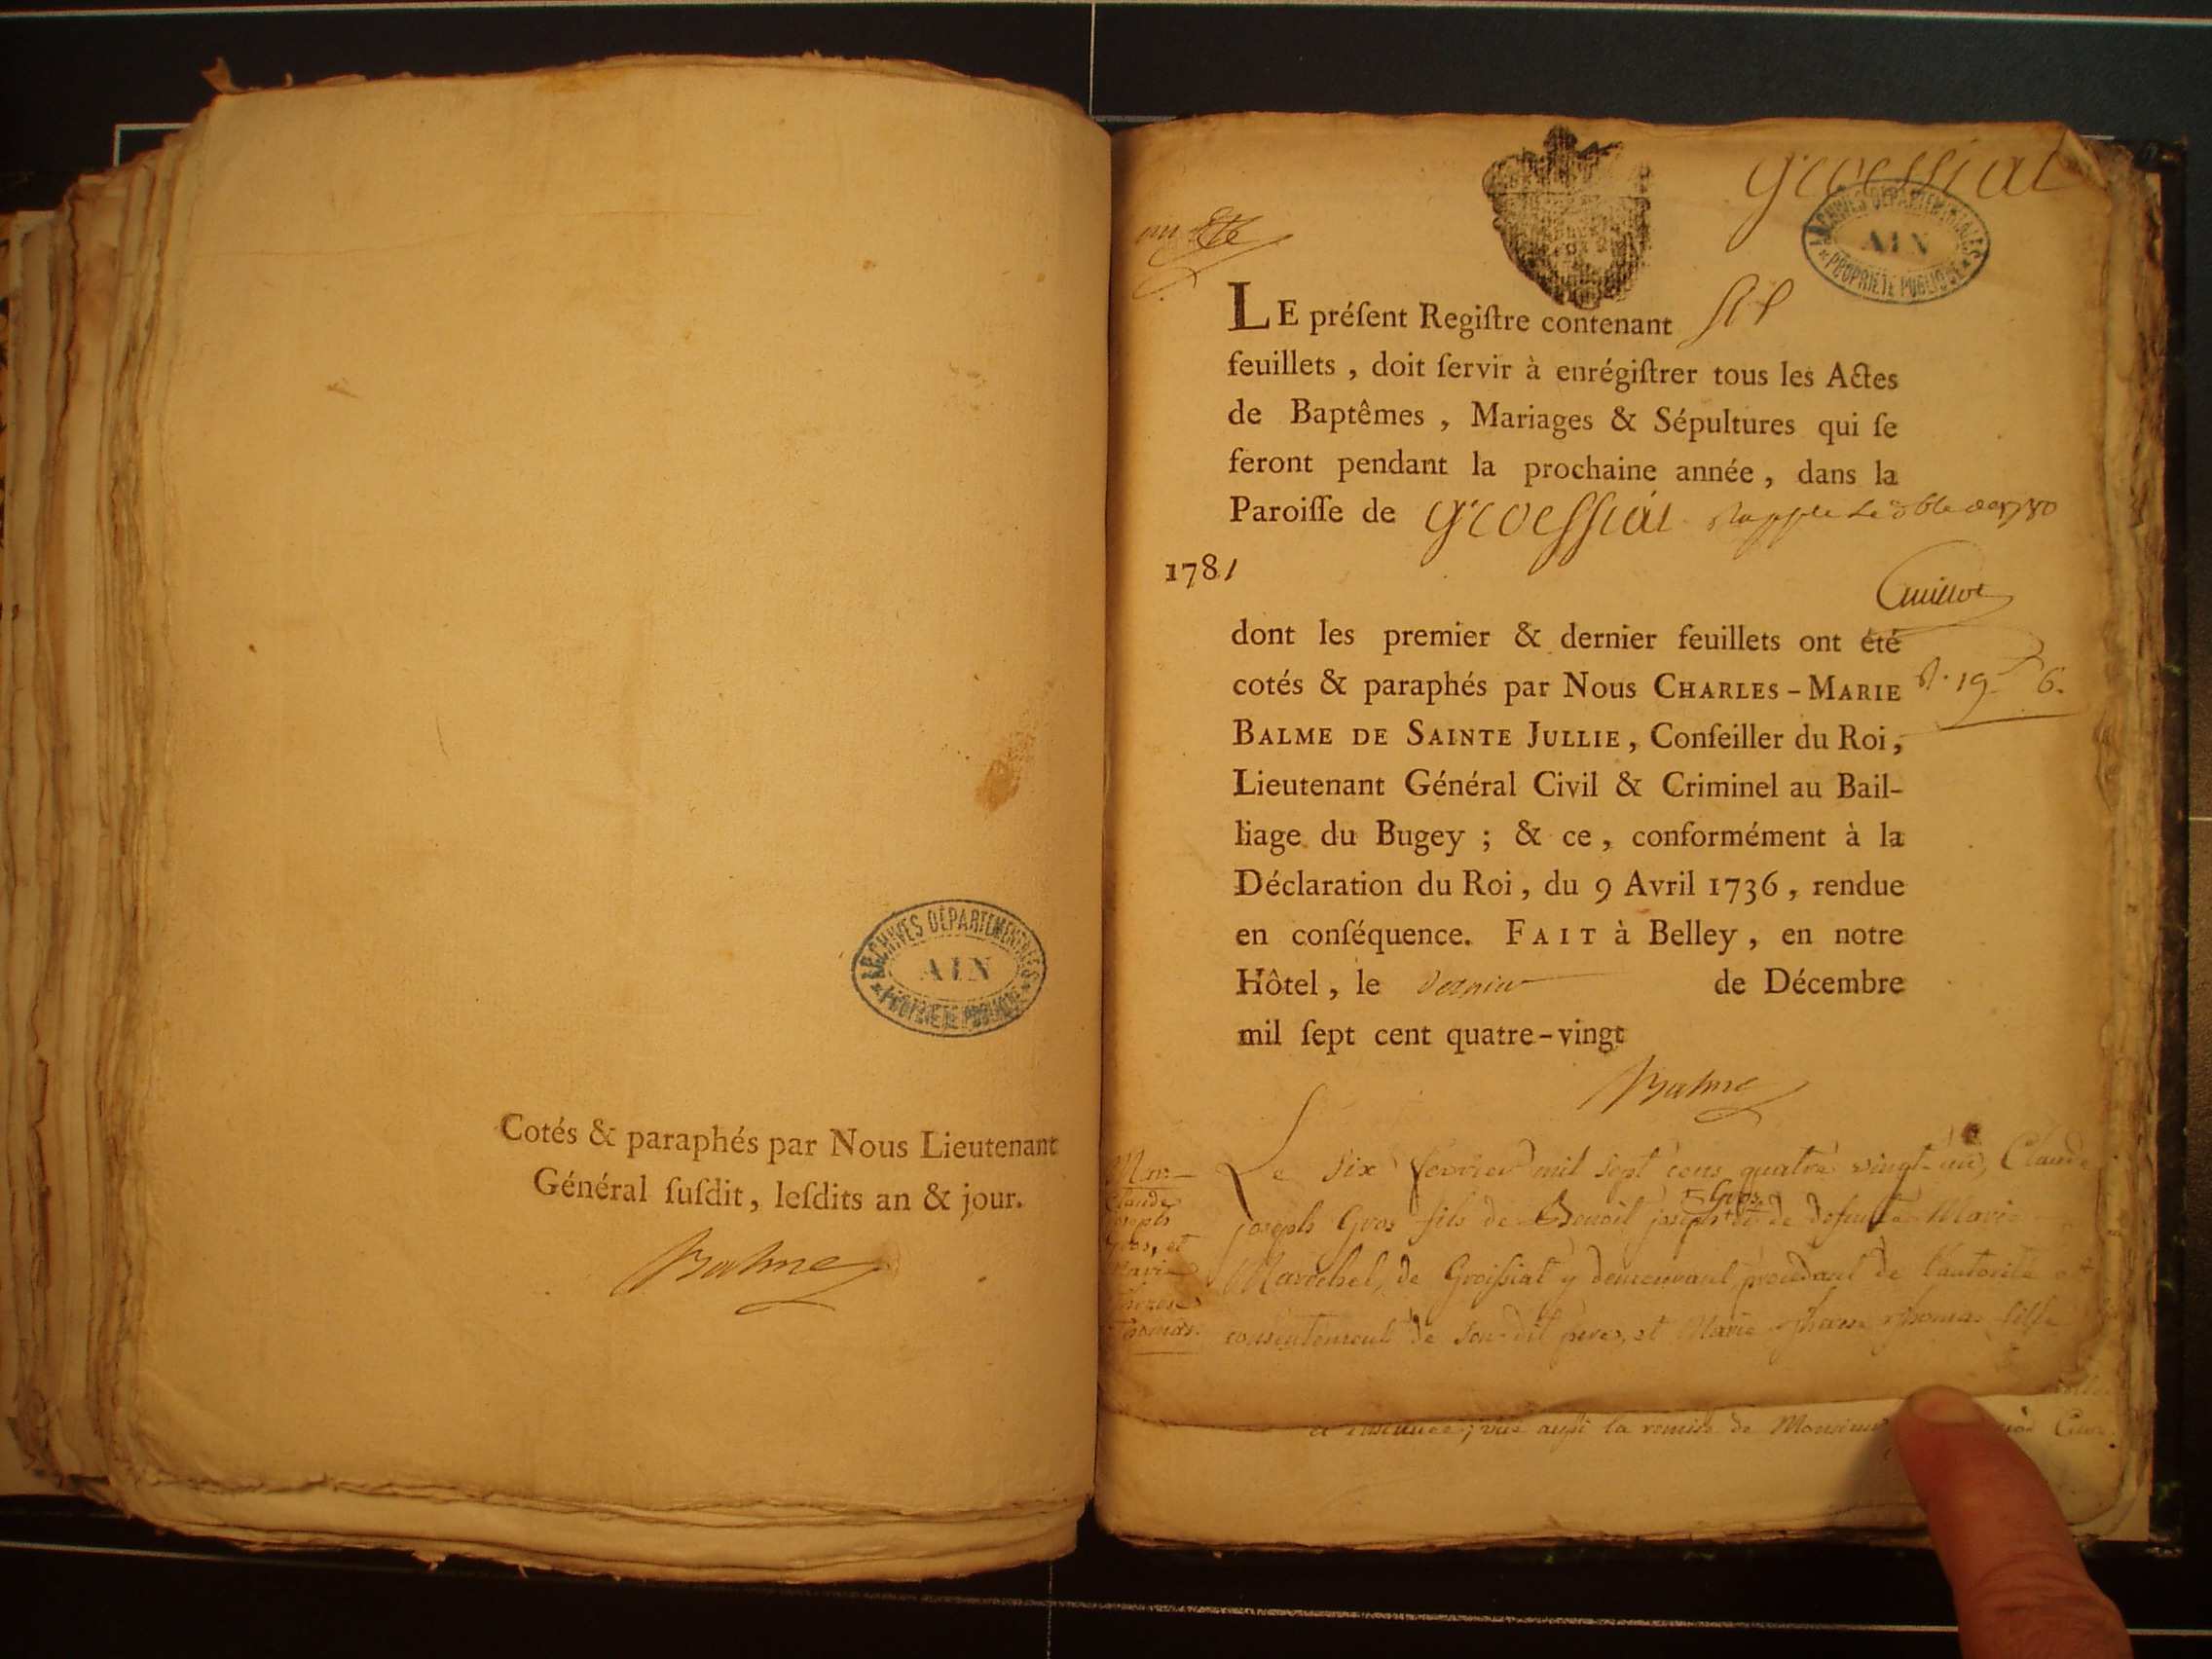 ARCHIVES DÉPARTEMENTALES
AIN
PROPRIÉTÉ PUBLIQUE
Cotés & paraphés par Nous Lieutenant
Général ſuſdit, leſdits an & jour.
Balme
Groissiat
ARCHIVES DÉPARTEMENTALES
AIN
PROPRIÉTÉ PUBLIQUE
LE préſent Regiſtre contenant
feuillets, doit ſervir à enrégiſtrer tous les Actes
de Baptêmes, Mariages & Sépultures qui ſe
feront pendant la prochaine année, dans la
Paroiſſe de Groissiat
1781
dont les premier & dernier feuillets ont été
cotés & paraphés par Nous CHARLES-MARIE
BALME DE SAINTE JULLIE, Conſeiller du Roi,
Lieutenant Général Civil & Criminel au Bail-
liage du Bugey ; & ce, conformément à la
Déclaration du Roi, du 9 Avril 1736, rendue
en conſéquence. FAIT à Belley, en notre
Hôtel, le dernier de Décembre
mil ſept cent quatre-vingt
Balme
Claude
joseph
Gros, et
Marie
Therese
Thomas.
Le Six fevrier mil sept cens quatre vingt-un, Claude
Gros
joseph Gros fils de Benoit joseph et de defunte Marie
Marechel, de Groissiat y demeurant, procedant de l'autorité et
consentement de son-dit pere, et Marie Therese Thomas fille
vue aussi la remise de Monsieur Curé